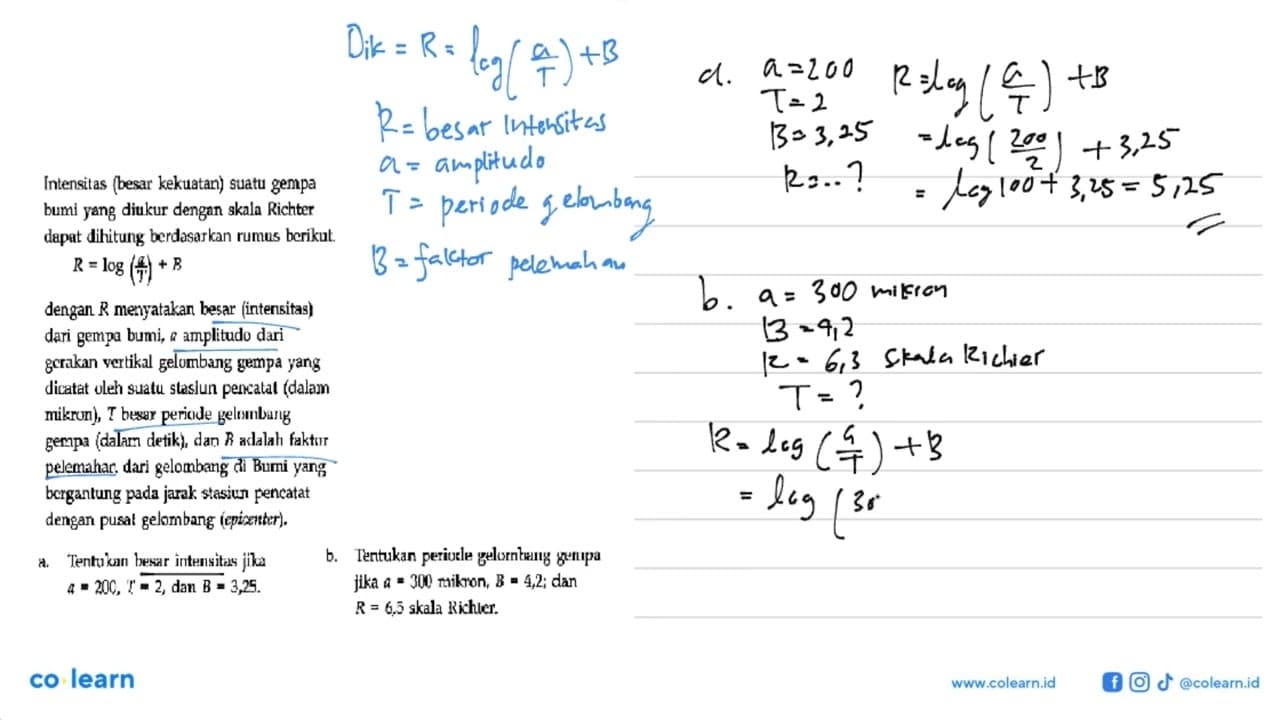 Intensitas (besar kekuatan) suatu gempa
bumi yang diukur dengan skala Richter
dapat dihitung berdasarkan rumus berikut.
R = log (a/T) + B
dengan R menyatakan besar (intensitas)
dari gempa bumi, a amplitudo dari
gerakan vertikal gelombang gempa yang
dicatat oleh suatu stasiun pencatat (dalam
mikron), T besar periode gelombang
gempa (dalam detik), dan B adalah faktor
pelemahan dari gelombang di Bumi yang
bergantung pada jarak stasiun pencatat
dengan pusat gelombang (epicenter).
a. Tentukan besar intensitas jika
a = 200, T = 2, dan B = 3,25.
b. Tentukan periode gelombang gempa
jika a = 300 mikron, B = 4,2; dan
R = 6,3 skala Richter.
Dik = R = log (a/T) + B
R = besar Intensitas
a = amplitudo
T = periode gelombang
B = faktor pelemahan
a. a = 200
T = 2
B = 3,25
R = ..?
R = log (a/T) + B
= log (200/2) + 3,25
= log 100 + 3,25 = 5,25
b. a = 300 mikron
B = 4,2
R = 6,3 Skala Richier
T = ?
R = log (a/T) + B
= log (30
co learn
www.colearn.id
@colearn.id